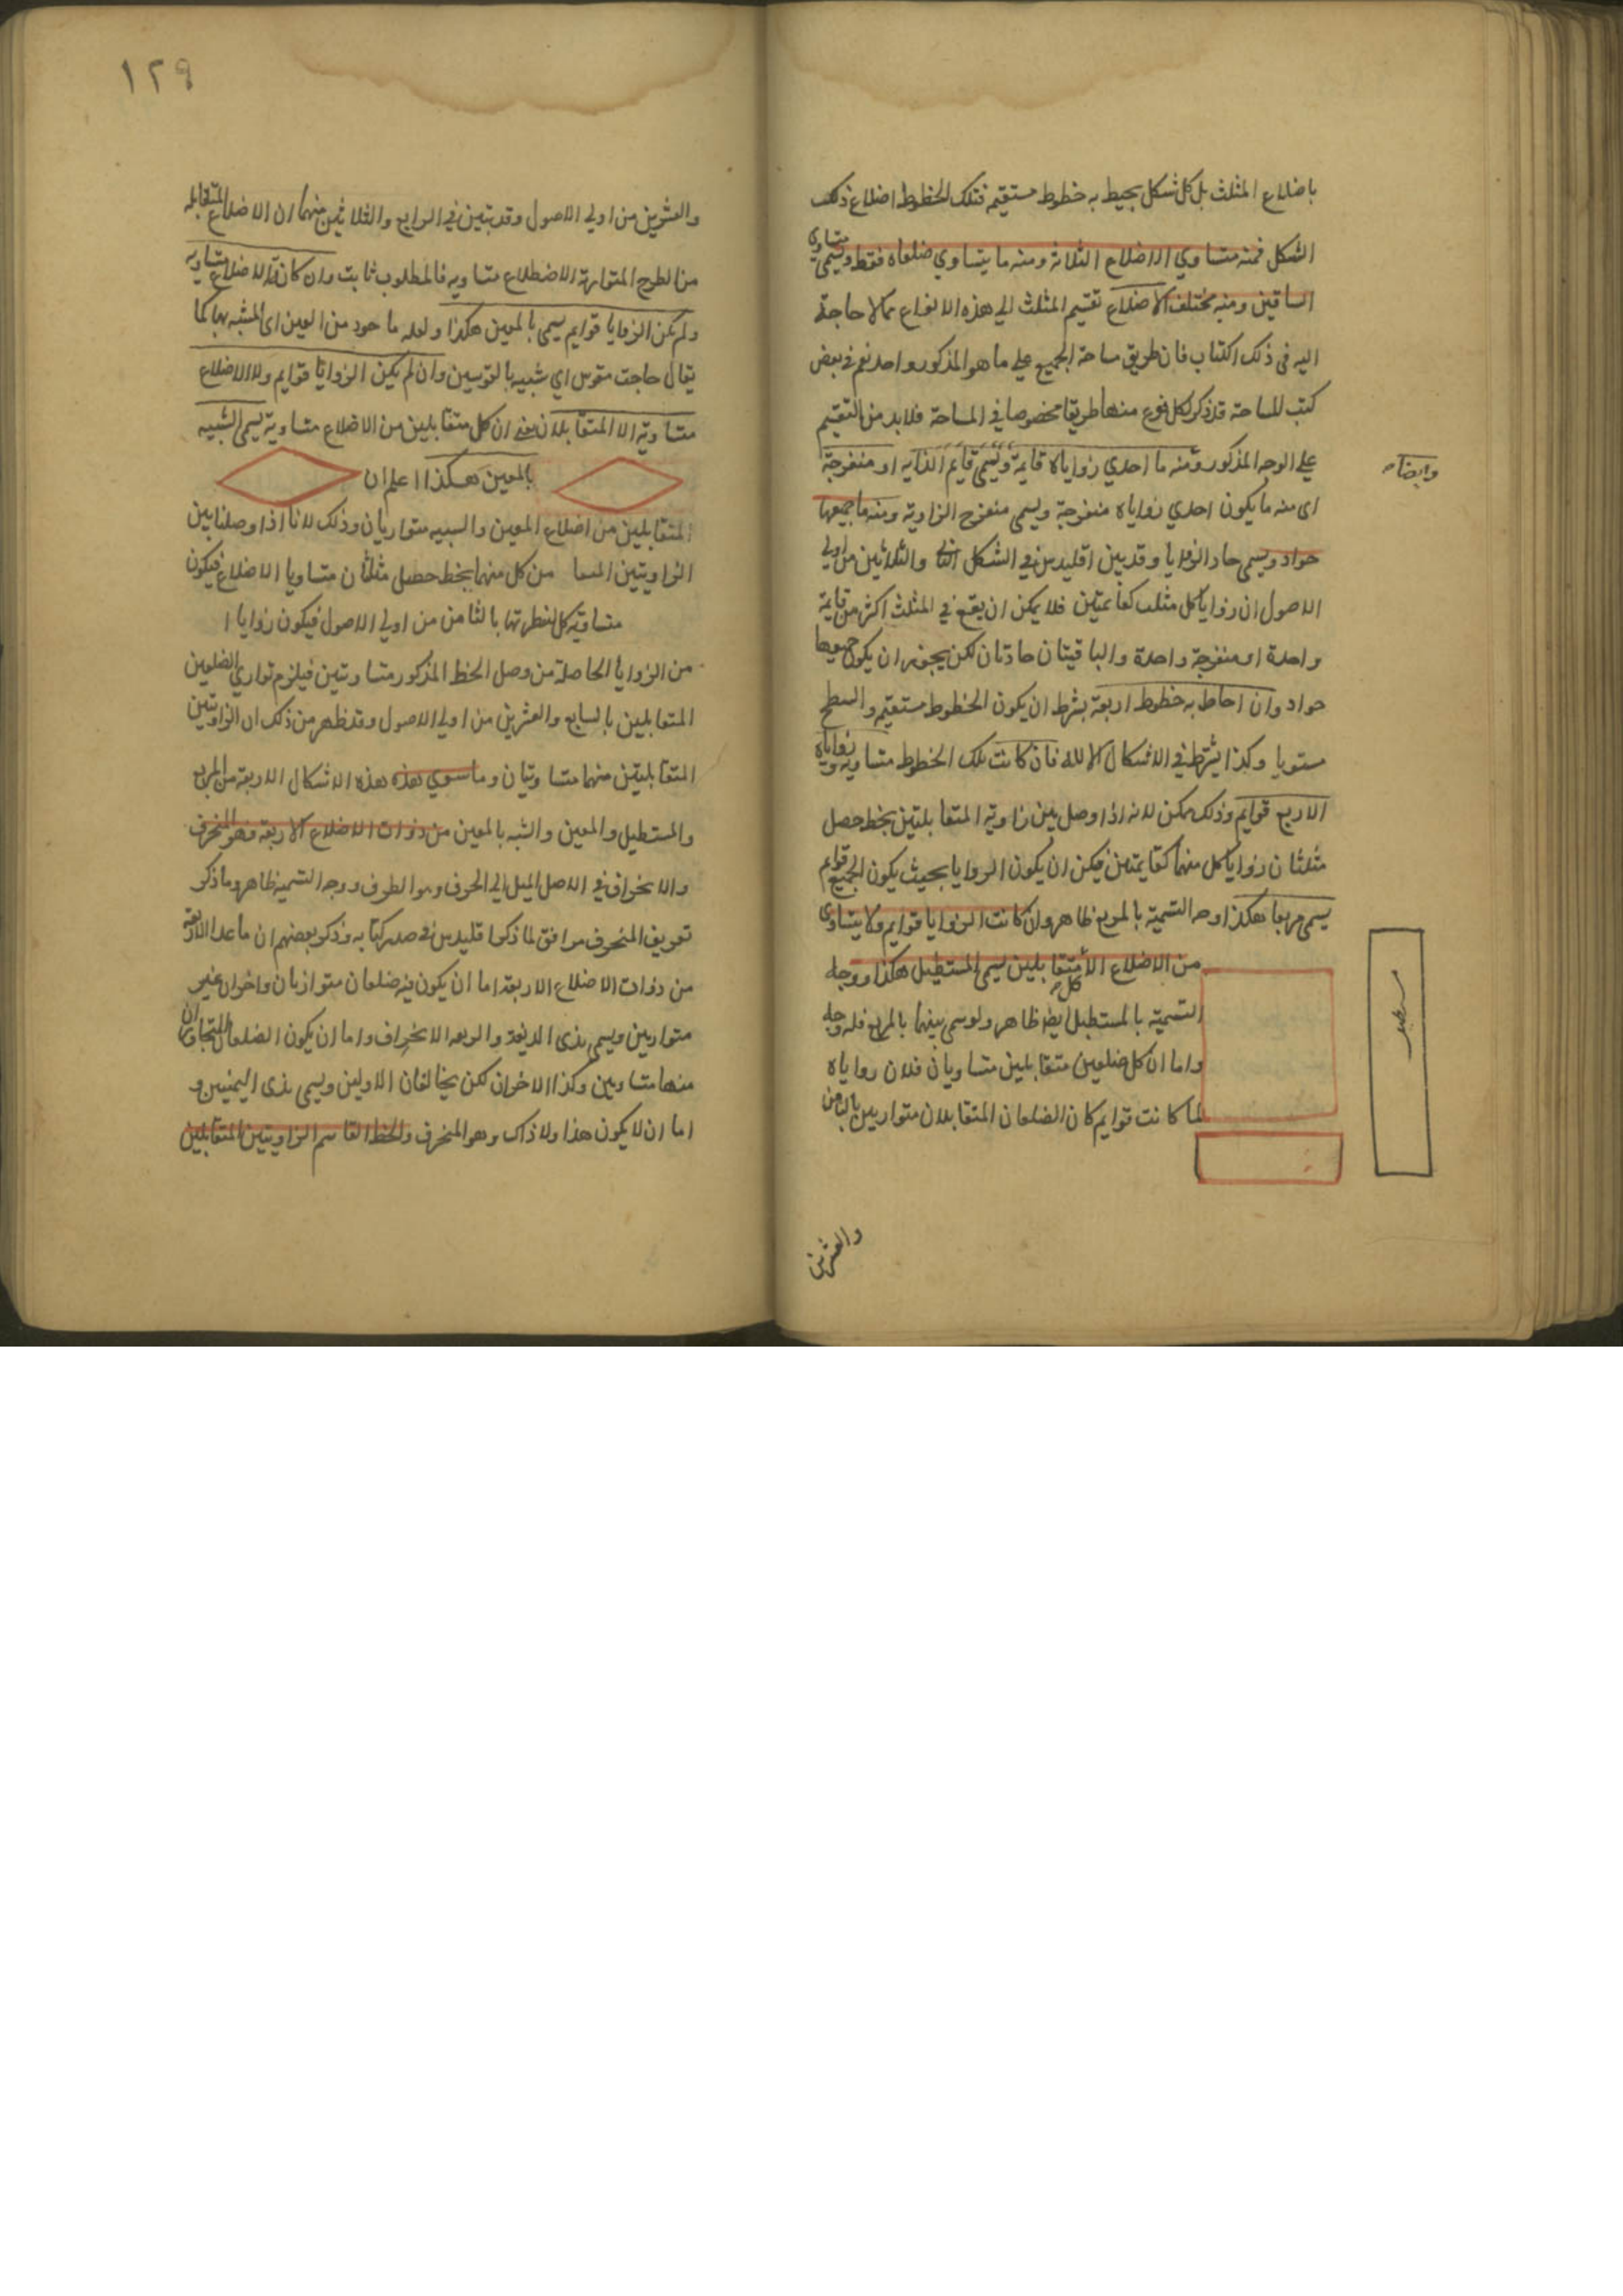 باضلاع المثلث بل كل شكل يحيط به خطوط مستقيمة فتلك الخطوط اضلاع ذلك
الشكل فمنه متساوي الاضلاع الثلاثة ومنه ما يتساوي ضلعاه فقط ويسمى متساوي
الساقين ومنه مختلف الاضلاع تقسيم المثلث الي هذه الانواع مما لا حاجة
اليه في ذلك الكتاب فان طريق مساحة الجميع علي ما هو المذكور واحد نعم في بعض
كتب المساحة قد ذكر لكل نوع منها طريقا مخصوصا في المساحة فلا بد من التقسيم
علي الوجه المذكور ومنه ما احدي زواياه قايمة ويسمى قايم الزاية او منفرجة
وايضا
اى منه ما يكون احدي زواياه منفرجة ويسمى منفرج الزاوية ومنه ما جميعها
حواد ويسمى حاد الزوايا وقد بين اقليدس في الشكل الثاني والثلاثين من اولي
الاصول ان زوايا كل مثلث كقائمتين فلا يمكن ان يقع في المثلث اكثر من قايمة
واحدة او منفرجة واحدة والباقيتان حادتان لكن يجوز ان يكون جميعها
حواد وان احاط به خطوط اربعة بشرط ان يكون الخطوط مستقيم والسطح
مستويا وكذا يشترط في الاشكال فان كانت تلك الخطوط متساوية وزواياه
الاربع قوايم وذلك ممكن لانه اذا وصل بين زاوية المتقابلتين بخط حصل
مثلثان زوايا كل منهما كقايمتين فيمكن ان يكون الزوايا بحيث يكون الجميع قوايم
يسمى مربعا هكذا وجه التسمية بالمربع ظاهر وان كانت الزوايا قوايم ولا يتساوى
من الاضلاع الا متقابلين يسمى المستطيل هكذا ووجه
كل
التسمية بالمستطيل ايضا ظاهر ولو سمى بينهما بالمربع فله وجه
واما ان كل ضلعين متقابلين متساويان فلان زواياه
لما كانت قوايم كان الضلعان المتقابلان متواريين بالثامن
والعشرين
١٢٩
والعشرين من اولي الاصول وقد تبين في الرابع والثلاثين منهما ان الاضلاع المتقابله
من السطوح المتوازية الاضطلاع متساويه فالمطلوب ثابت وان كان الاضلاع متساويه
ولم يكن الزوايا قوايم يسمى بالمعين هكذا ولعله ماخود من العين اى المشبه بها كما
يقال حاجت مقوس اي شبيه بالقوسين وان لم يكن الزوايا قوايم ولا الاضلاع
متساوية الا المتقابلان يعني ان كل متقابلين من الاضلاع متساوية يسمى الشبيه
بالمعين هكذا اعلم ان
المتقابلين من اضلاع المعين والشبيه متواريان وذلك لانا اذا وصلنا بين
الزاويتين من كل منهما بخط حصل مثلثان متساويا الاضلاع فيكون
متساوية كل لنظيرتها بالثامن من اولي الاصول فيكون زوايا ا
من الزوايا الحاصلة من وصل الخط المذكور متساوتين فيلزم تواري الضلعين
المتقابلين بالسابع والعشرين من اولي الاصول وقد ظهر من ذلك ان الزاويتين
المتقابليتين منهما متساويتان وما سوي هذه هذه الاشكال الاربعة من المربع
والمستطيل والمعين والشبه بالمعين من ذوات الاضلاع الاربعة فهو المنحرف
والانحراف في الاصل الميل الي الحرف وهو الطرف ووجه التسمية ظاهر وما ذكر
تعريف المنحرف موافق لما ذكرا قليدس في صدر كتابه وذكر بعضهم ان ما عدا الاربعة
من ذوات الاضلاع الاربعة اما ان يكون فيه ضلعان متوازيان واخران غير
متواريين ويسمى بذى الانحراف واما ان يكون الضلعان المتجاوران
منها متساويين وكذا الاخران لكن يخالفان الاولين ويسمى بذى اليمنيين و
اما ان لا يكون هذا ولا ذاك وهو المنحرف والخط القاسم الزاويتين المتقابلين